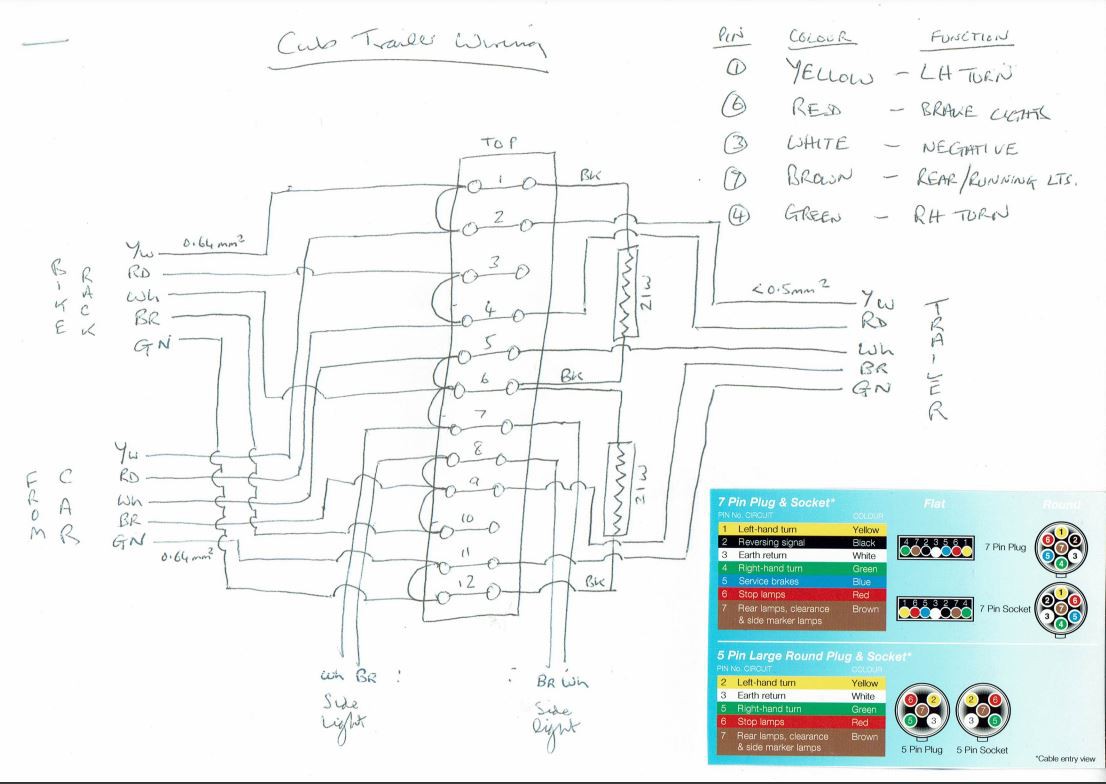 Cub Trailer Wiring
PIN COLOUR FUNCTION
① YELLOW – LH TURN
⑥ RED – BRAKE LIGHTS
③ WHITE – NEGATIVE
⑦ BROWN – REAR/RUNNING LTS.
④ GREEN – RH TURN
TOP
1
2
3
4
5
6
7
8
9
10
11
12
BK
21W
BK
21W
BK
BIKE RACK
YW 0.64mm²
RD
Wh
BR
GN
FROM CAR
YW
RD
Wh
BR
GN
0.64mm²
<0.5mm²
YW
RD
Wh
BR
GN
TRAILER
Wh BR :
Side
Light
: BR Wh
Side
light
7 Pin Plug & Socket* Flat Round
PIN No. CIRCUIT COLOUR
1 Left-hand turn Yellow
2 Reversing signal Black
3 Earth return White
4 Right-hand turn Green
5 Service brakes Blue
6 Stop lamps Red
7 Rear lamps, clearance Brown
& side marker lamps
4 7 2 3 5 6 1
7 Pin Plug
1 2 3 4 5 6 7
1 6 5 3 2 7 4
7 Pin Socket
1 2 3 4 5 6 7
5 Pin Large Round Plug & Socket*
PIN No. CIRCUIT COLOUR
2 Left-hand turn Yellow
3 Earth return White
5 Right-hand turn Green
6 Stop lamps Red
7 Rear lamps, clearance Brown
& side marker lamps
6 2 7 5 3
2 6 7 3 5
5 Pin Plug 5 Pin Socket
*Cable entry view